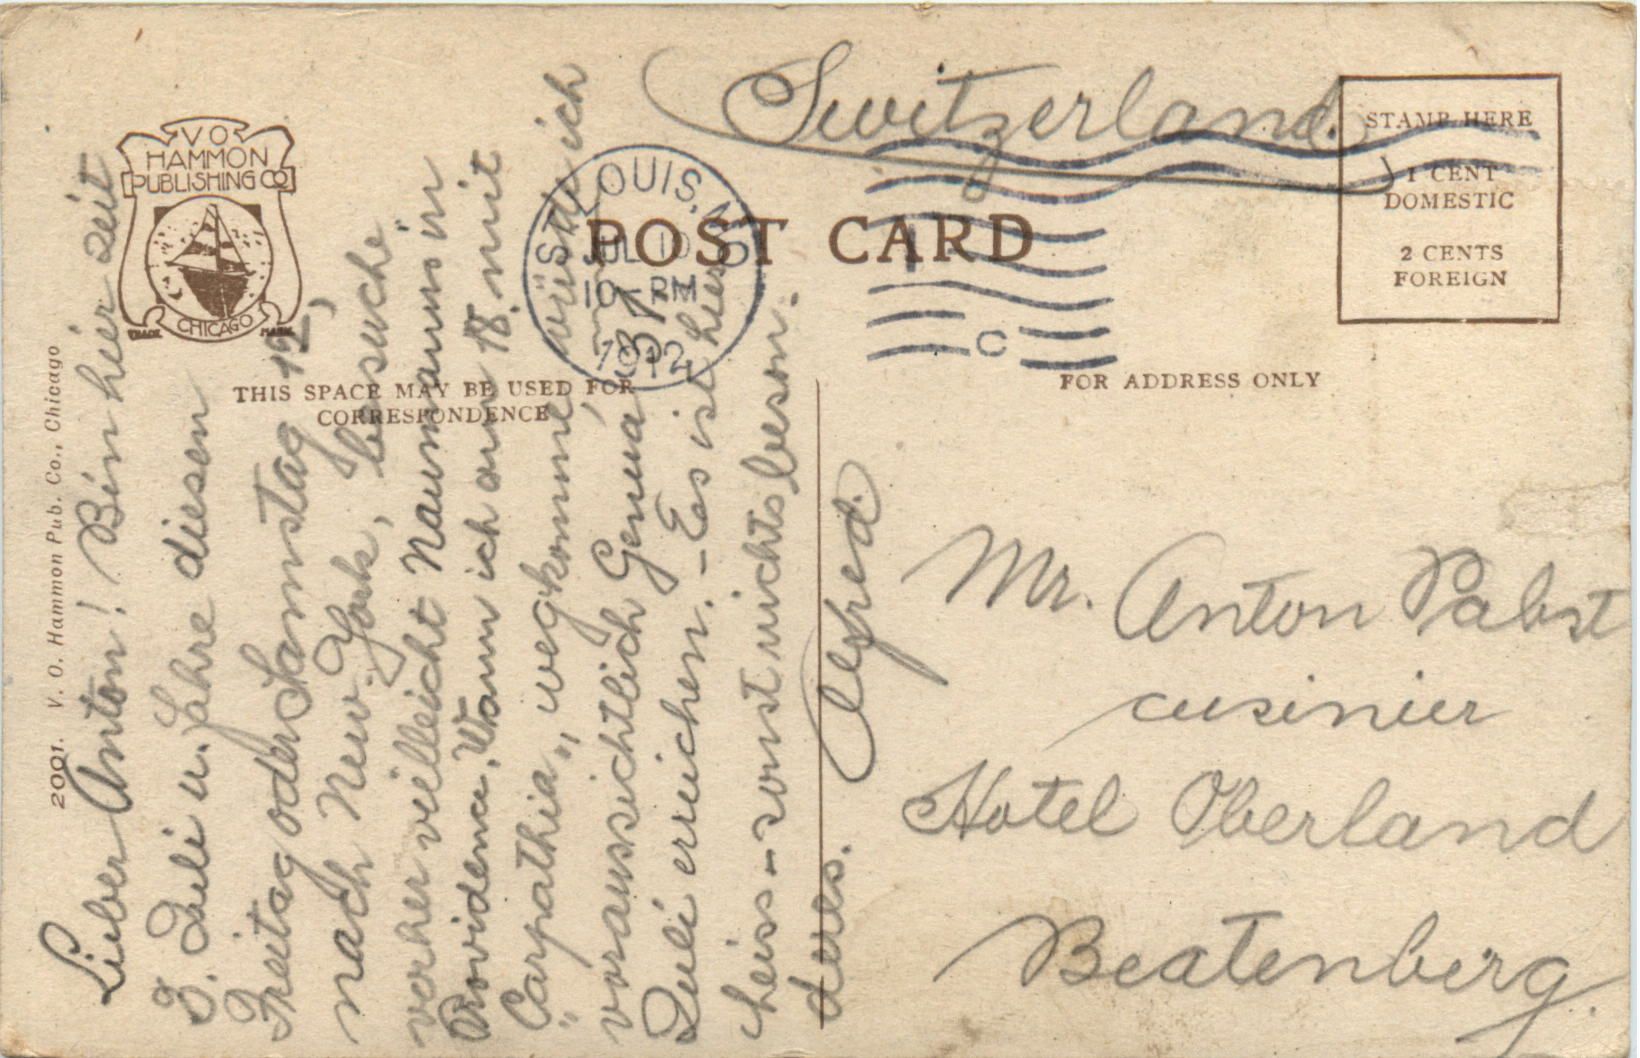 V. O. HAMMON PUBLISHING CO
TRADE MARK
CHICAGO
2001. V. O. Hammon Pub. Co., Chicago
THIS SPACE MAY BE USED FOR
CORRESPONDENCE
POST CARD
FOR ADDRESS ONLY
STAMP HERE
1 CENT
DOMESTIC
2 CENTS
FOREIGN
ST. LOUIS, MO
JUL 10
10 - PM
1912
C
Switzerland.
Mr. Anton Pabst
cusinier
Hotel Oberland
Beatenberg.
Lieber Anton! Bin hier zeit
Juli u. Jahre diesen
Freitag oder Samstag 12,
nach New. York, besuche
vorher villeicht Naumann in
Providence, Wann ich am 18. mit
"Carpathia" wegkomme, würde ich
voraussichtlich Genua 31
Juli erreichen. - Es ist hier
heiss - sonst nichts beson-
deres. Alfred.